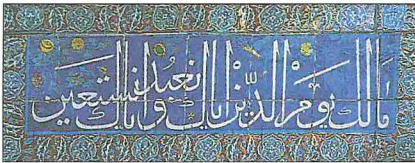 مالك يوم الدين إياك نعبد وإياك نستعين